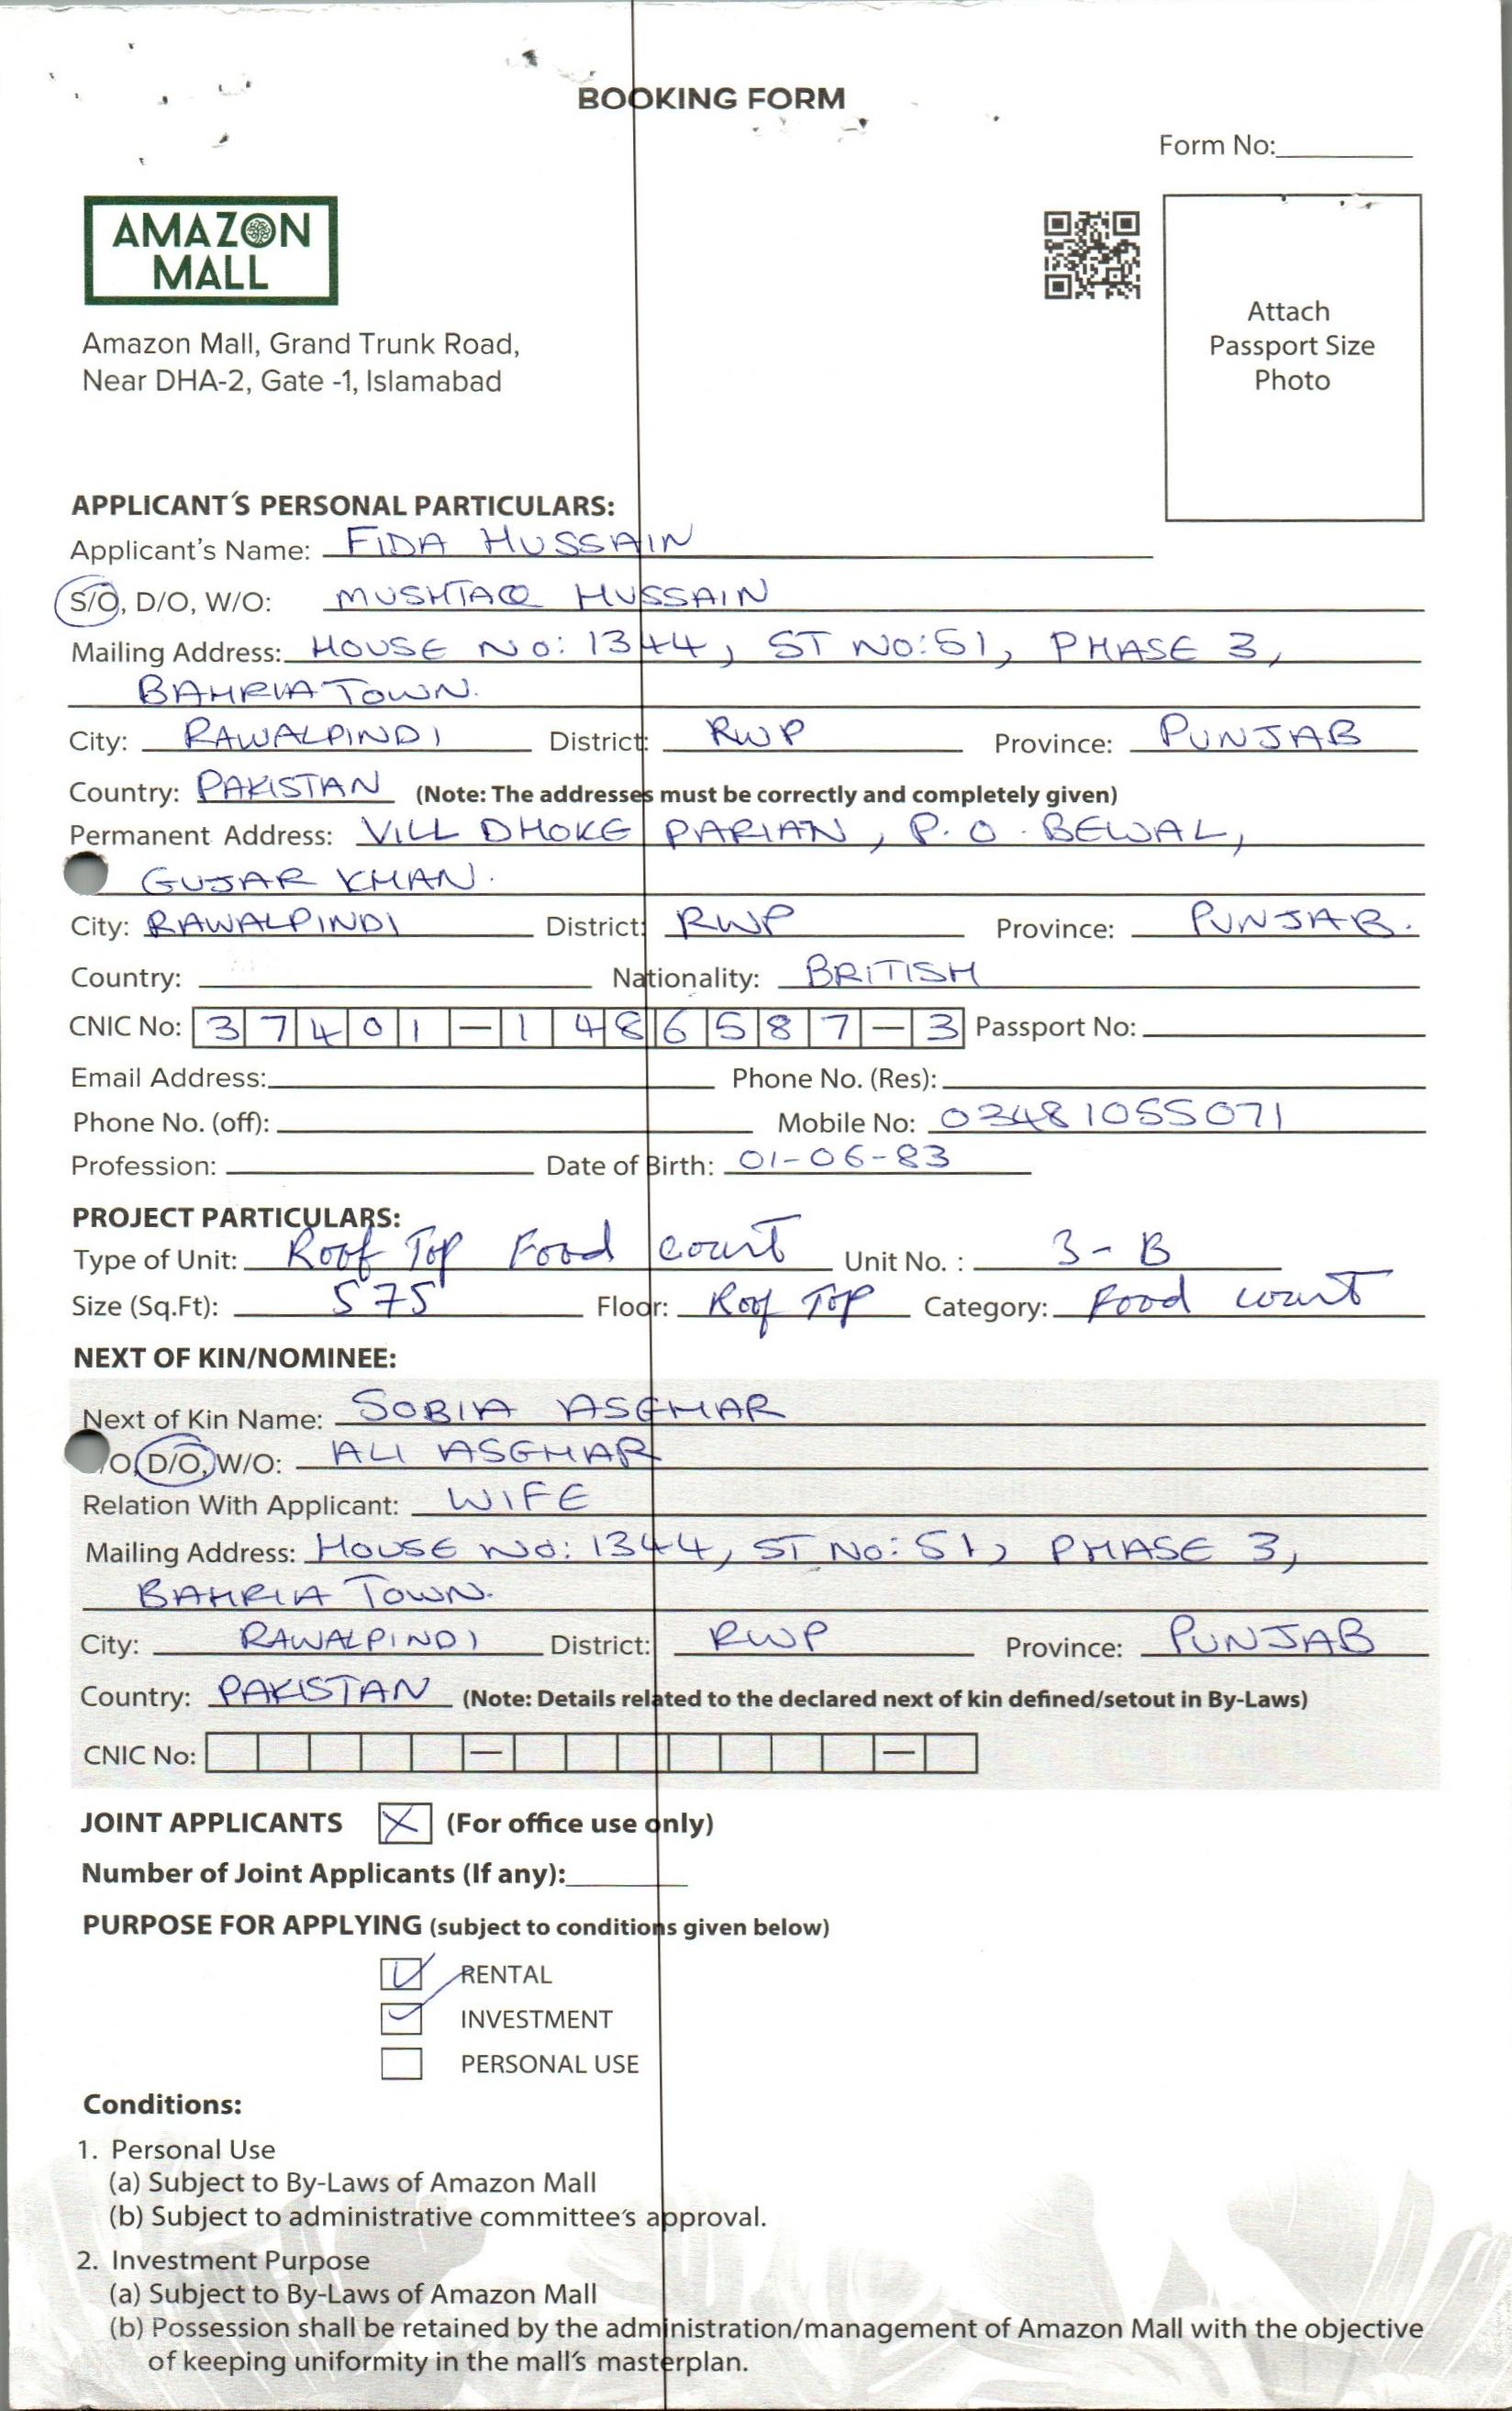 BOOKING FORM
Form No:
AMAZON
MALL
Attach
Passport Size
Photo
Amazon Mall, Grand Trunk Road,
Near DHA-2, Gate -1, Islamabad
APPLICANT'S PERSONAL PARTICULARS:
Applicant's Name: FIDA HUSSAIN
S/O, D/O, W/O: MUSHTAQ HUSSAIN
Mailing Address: HOUSE NO: 1344, ST NO: 51, PHASE 3,
BAHRIA TOWN.
City: RAWALPINDI District: RWP Province: PUNJAB
Country: PAKISTAN (Note: The addresses must be correctly and completely given)
Permanent Address: VILL DHOKE PARIAN, P.O. BEWAL,
GUJAR KHAN.
City: RAWALPINDI District: RWP Province: PUNJAB.
Country: Nationality: BRITISH
CNIC No: 37401-1486587-3 Passport No:
Email Address: Phone No. (Res):
Phone No. (off): Mobile No: 03481055071
Profession: Date of Birth: 01-06-83
PROJECT PARTICULARS:
Type of Unit: Roof Top Food court Unit No. : 3-B
Size (Sq.Ft): 575 Floor: Roof Top Category: Food court
NEXT OF KIN/NOMINEE:
Next of Kin Name: SOBIA ASGHAR
/O, D/O, W/O: ALI ASGHAR
Relation With Applicant: WIFE
Mailing Address: HOUSE NO: 1344, ST NO: 51, PHASE 3,
BAHRIA TOWN.
City: RAWALPINDI District: RWP Province: PUNJAB
Country: PAKISTAN (Note: Details related to the declared next of kin defined/setout in By-Laws)
CNIC No: - -
JOINT APPLICANTS X (For office use only)
Number of Joint Applicants (If any):
PURPOSE FOR APPLYING (subject to conditions given below)
RENTAL
INVESTMENT
PERSONAL USE
Conditions:
1. Personal Use
(a) Subject to By-Laws of Amazon Mall
(b) Subject to administrative committee's approval.
2. Investment Purpose
(a) Subject to By-Laws of Amazon Mall
(b) Possession shall be retained by the administration/management of Amazon Mall with the objective
of keeping uniformity in the mall's masterplan.